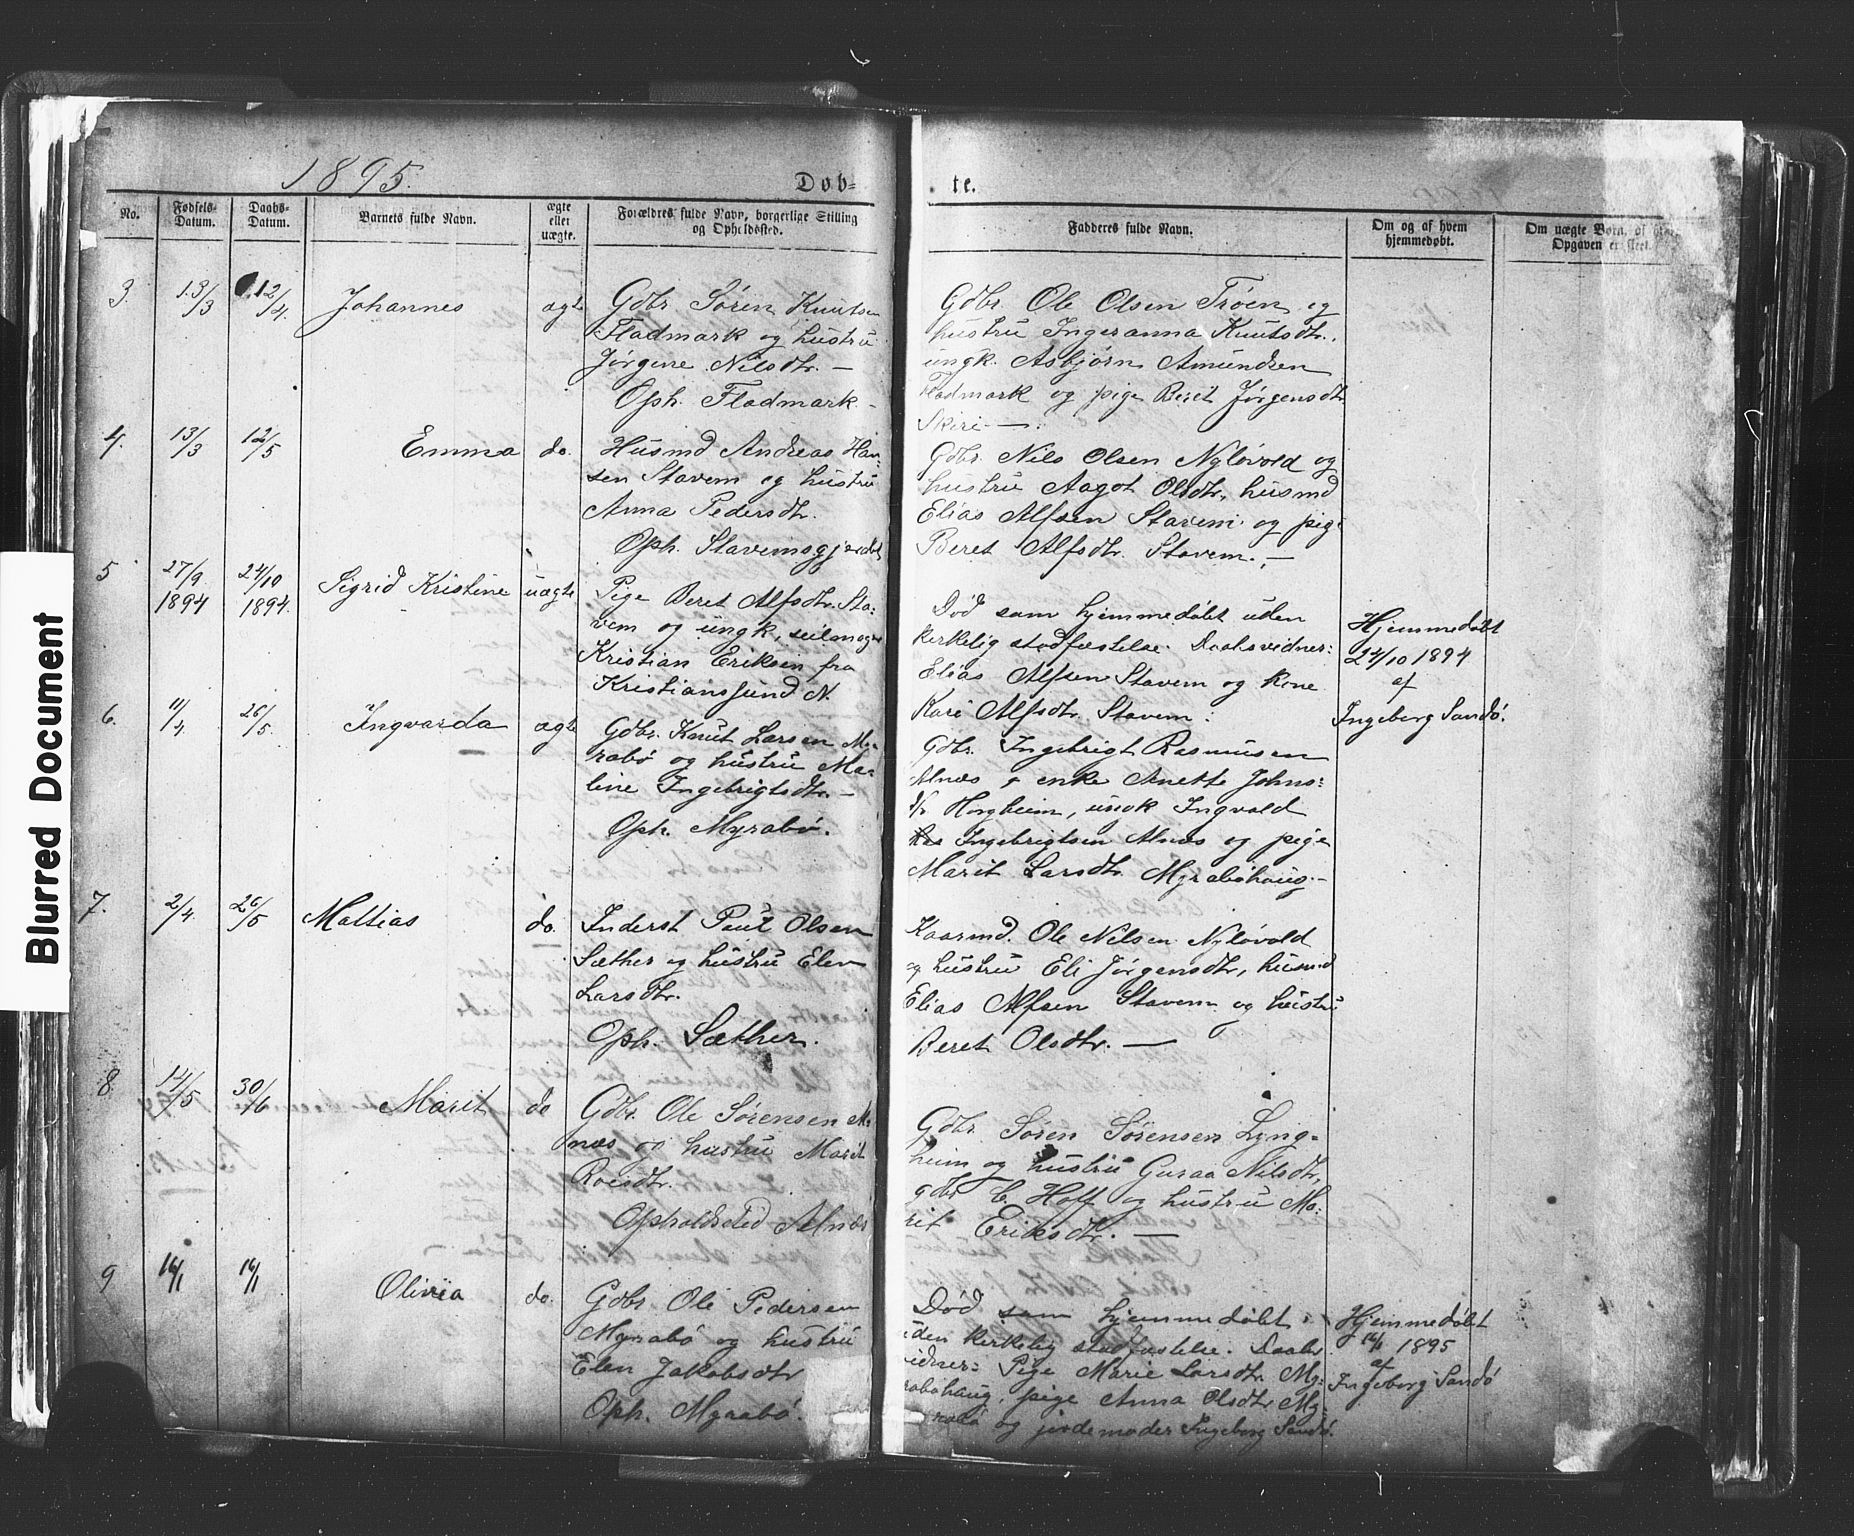 Blurred Document
1895.
Døb-
te.
No.
Fødsels-Datum.
Daabs-Datum.
Barnets fulde Navn.
ægte eller uægte.
Forældres fulde Navn, borgerlige Stilling og Opholdssted.
Fadderes fulde Navn.
Om og af hvem hjemmedøbt.
Om uægte Børn, af
Opgaven er sket.
3. 13/3 12/4. Johannes ægte
Gdbr. Søren Knutsen
Fladmark og hustru
Jørgene Nilsdtr. —
Oph. Fladmark —
Gdbr. Ole Olsen Trøen og
hustru Ingeranna Knutsdtr.,
ungk. Asbjørn Amundsen
Fladmark og pige Beret Jørgensdtr
Skiri —
4. 13/3 12/5 Emma do.
Husmd Andreas Han-
sen Stavem og hustru
Anna Pedersdtr.
Oph. Stavemsgjerdet
Gdbr. Nils Olsen Nyløvold og
hustru Aagot Olsdtr, husmd
Elias Alfsen Stavem og pige
Beret Alfsdtr. Stavem. —
5 27/9 1894 24/10 1894. Sigrid Kristine uægte
Pige Beret Alfsdtr. Sta-
vem og ungk, seilmager
Kristian Eriksen fra
Kristianssund N.
Død som hjemmedøbt uden
kirkelig stadfæstelse. Daabsvidner:
Elias Alfsen Stavem og kone
Kari Alfsdtr. Stavem.
Hjemmedøbt
24/10 1894
af
Ingeborg Sandø.
6. 11/4 26/5 Ingvarda ægte
Gdbr. Knut Larsen My-
rabø og hustru Ma-
line Ingebrigtsdtr. —
Oph. Myrabø.
Gdbr. Ingebrigt Rasmusen
Alnæs & enke Anette Johns-
d/r Horgheim, ungk Ingvald
Ras Ingebrigtsen Alnæs og pige
Marit Larsdtr. Myrabøhaug. —
7. 2/4. 26/5 Mattias do.
Inderst Paul Olsen
Sæther og hustru Elen
Larsdtr.
Oph. Sæther.
Kaarmd. Ole Nilsen Nyløvold
og hustru Eli Jørgensdtr, husmd
Elias Alfsen Stavem og hustru
Beret Olsdtr. —
8. 14/5 30/6 Marit do
Gdbr. Ole Sørensen Al-
næs og hustru Marit
Roesdtr.
Opholdssted Alnæs
Gdbr. Søren Sørensen Lyng-
heim og hustru Guraa Nilsdtr,
gdbr E. Hoff og hustru Ma-
rit Eriksdtr. —
9 16/1 16/1 Olivia do.
Gdbr. Ole Pedersen
Myrabø og hustru
Elen Jakobsdtr
Oph. Myrabø.
Død som hjemmedøbt
uden kirkelig stadfæstelse. Daabs-
vidner: Pige Marie Larsdtr. My-
rabøhaug, pige Anna Olsdtr My-
rabø og jordemoder Ingeborg Sandø.
Hjemmedøbt
16/1 1895
af
Ingeborg Sandø